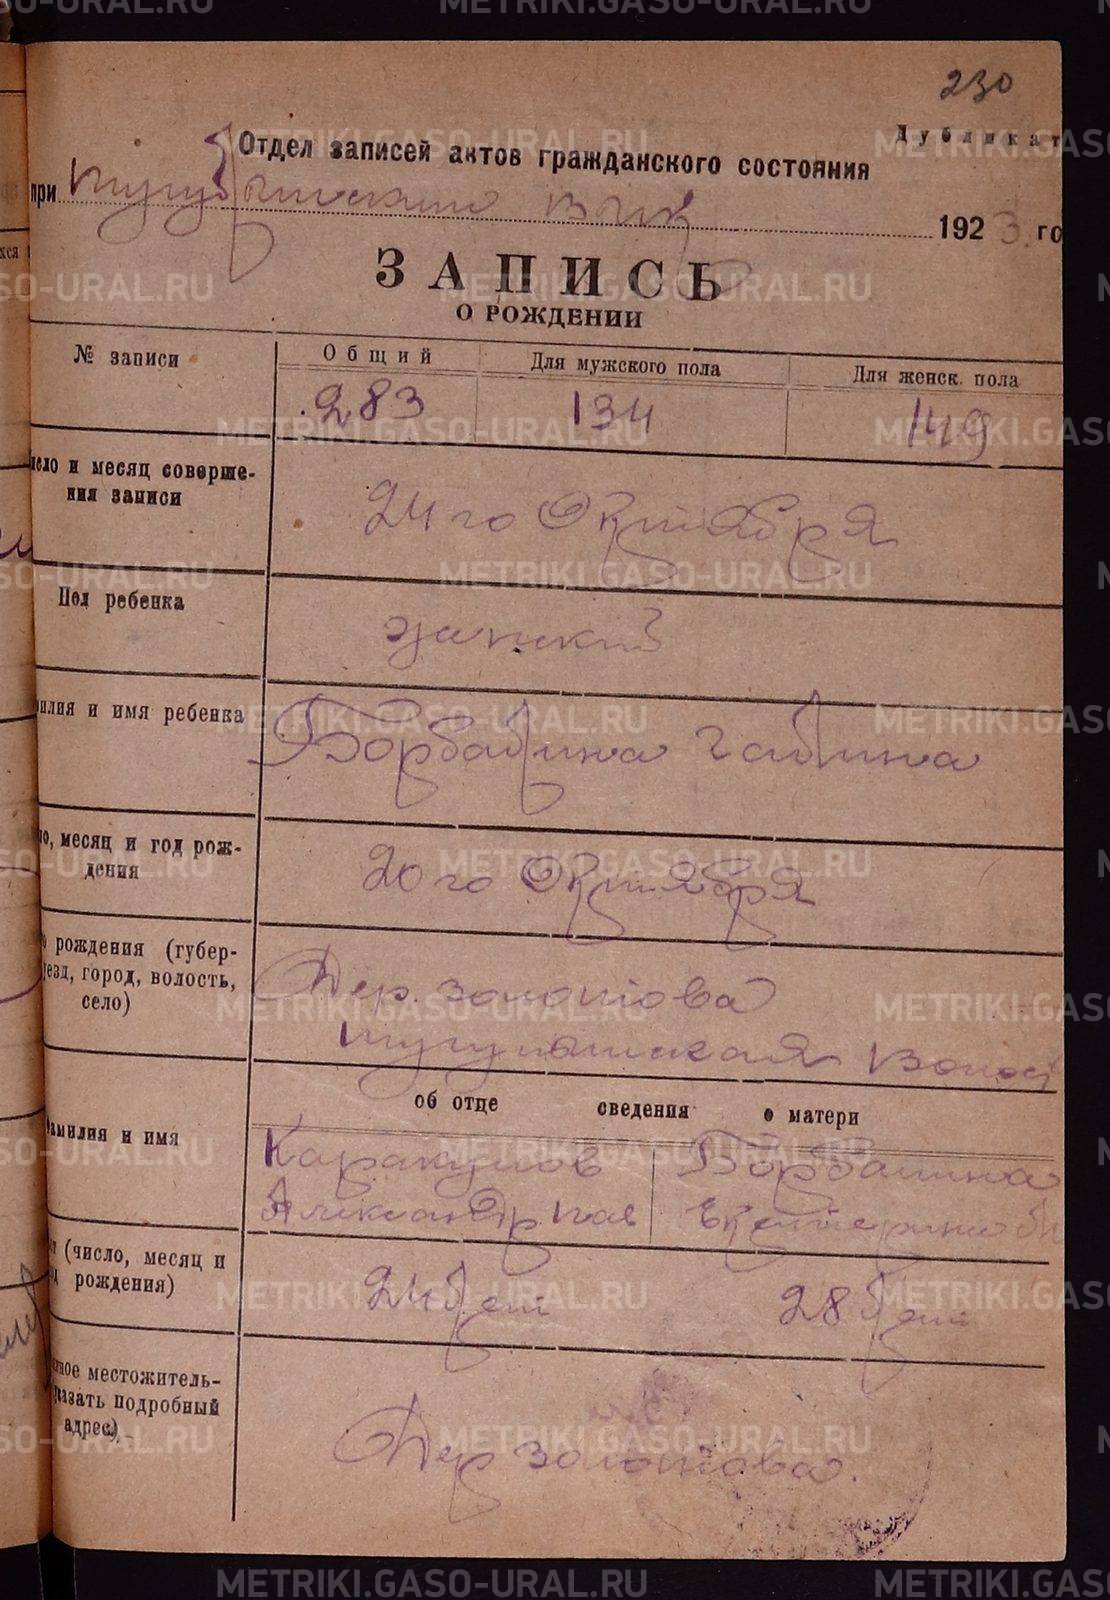 230
Дубликат
Отдел записей актов гражданского состояния
при 1923 го
ЗАПИСЬ
О РОЖДЕНИИ
№ записи
Общий
Для мужского пола
Для женск. пола
283
134
149
исло и месяц соверше-
ния записи
24 го Октября
Пол ребенка
женский
милия и имя ребенка
Галина
ло, месяц и год рож-
дения
20 го Октября
о рождения (губер-
уезд, город, волость,
село)
Дер. Золотова
об отце сведения о матери
Фамилия и имя
Каракулов
Александр
(число, месяц и
рождения)
24 лет
28 лет
нное местожитель-
указать подробный
адрес)
Дер Золотова.
METRIKI.GASO-URAL.RU